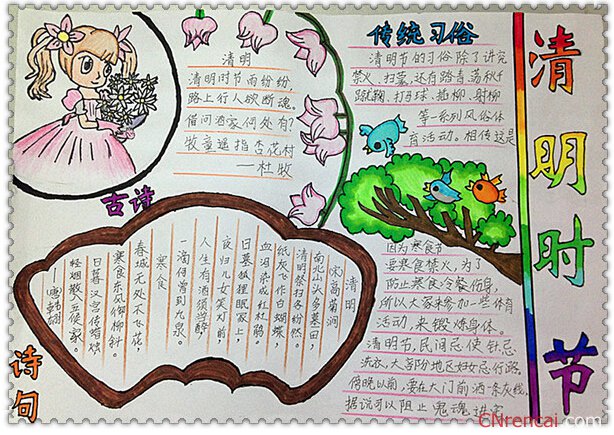 清明时节
清明
清明时节雨纷纷,
路上行人欲断魂。
借问酒家何处有?
牧童遥指杏花村
—杜牧
古诗
传统习俗
清明节的习俗除了讲究
禁火、扫墓,还有踏青、荡秋千
蹴鞠、打马球、插柳、射柳
等一系列风俗体
育活动。相传这是
因为寒食节
要寒食禁火,为了
防止寒食冷餐伤身,
所以大家来参加一些体育
活动,来锻炼身体。
清明节,民间忌使针忌
洗衣,大部份地区妇女忌行路。
傍晚以前,要在大门前洒一条灰线,
据说可以阻止鬼魂进宅
清明
宋 高菊涧
南北山头多墓田,
清明祭扫各纷然。
纸灰飞作白蝴蝶,
血泪染成红杜鹃
日暮狐狸眠冢上
夜归儿女笑灯前,
人生有酒须当醉,
一滴何曾到九泉。
寒食
春城无处不飞花
寒食东风御柳斜。
日暮汉宫传蜡烛
轻烟散入五侯家。
—唐 韩翃
诗句
CNrencai.com